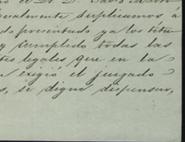 igualmente suplicamos á
do presentado ya los
y cumplido todas las
tes legales, que en la
a exigió el juzgado
s, se digne dispensar,